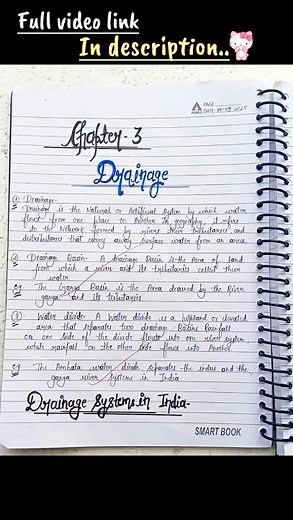 Full video link
In description..
PAGE:
DATE:
Chapter-3
Drainage
① Drainage-
Drainage is the Natural or Artificial System by which water
flows from one place to Another In geography, it refers
to the Network formed by rivers their tributaries and
distributaries that carry away surface water from an area
② Drainage Basin- A drainage Basin is the Area of land
from which a river and its tributaries collect their
water.
Eg The Ganga Basin is the Area drained by the River
ganga and its tributaries
③ Water divide- A Water divide is a highland or elevated
area that separates two drainage Basins Rainfall
on one side of the divide flows into one river system
while rainfall on the other side flows into Another
Eg The Ambala water divide separates the indus and the
ganga river systems in India
Drainage Systems in India-
SMART BOOK